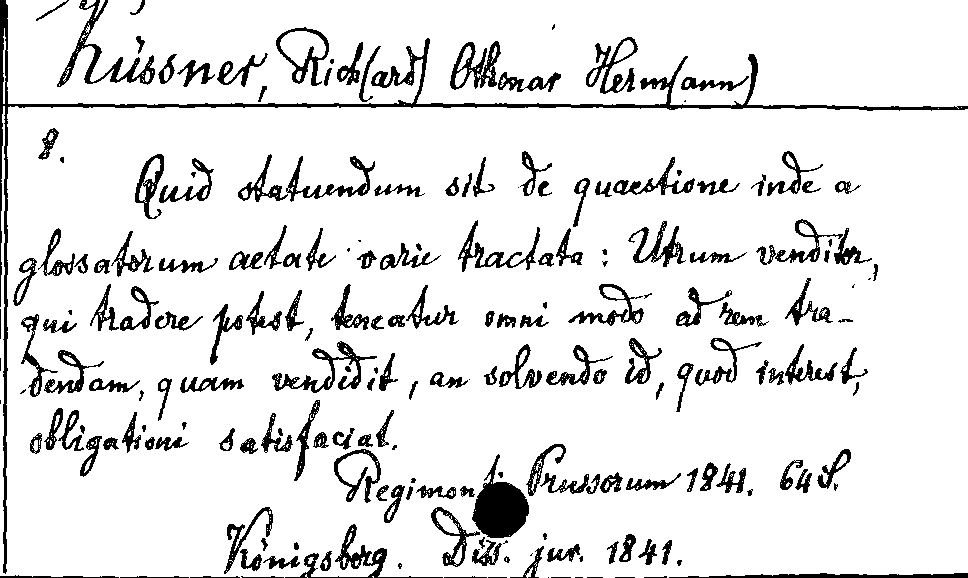 Küssner, Rich(ard) Othmar Herm(ann)
8.
Quid statuendum sit de quaestione inde a
glossatorum aetate varie tractata: Utrum venditor,
qui tradere potest, teneatur omni modo ad rem tra-
dendam, quam vendidit, an solvendo id, quod interest,
obligationi satisfaciat.
Regimonti Prussorum 1841. 64 S.
Königsberg. Diss. jur. 1841.